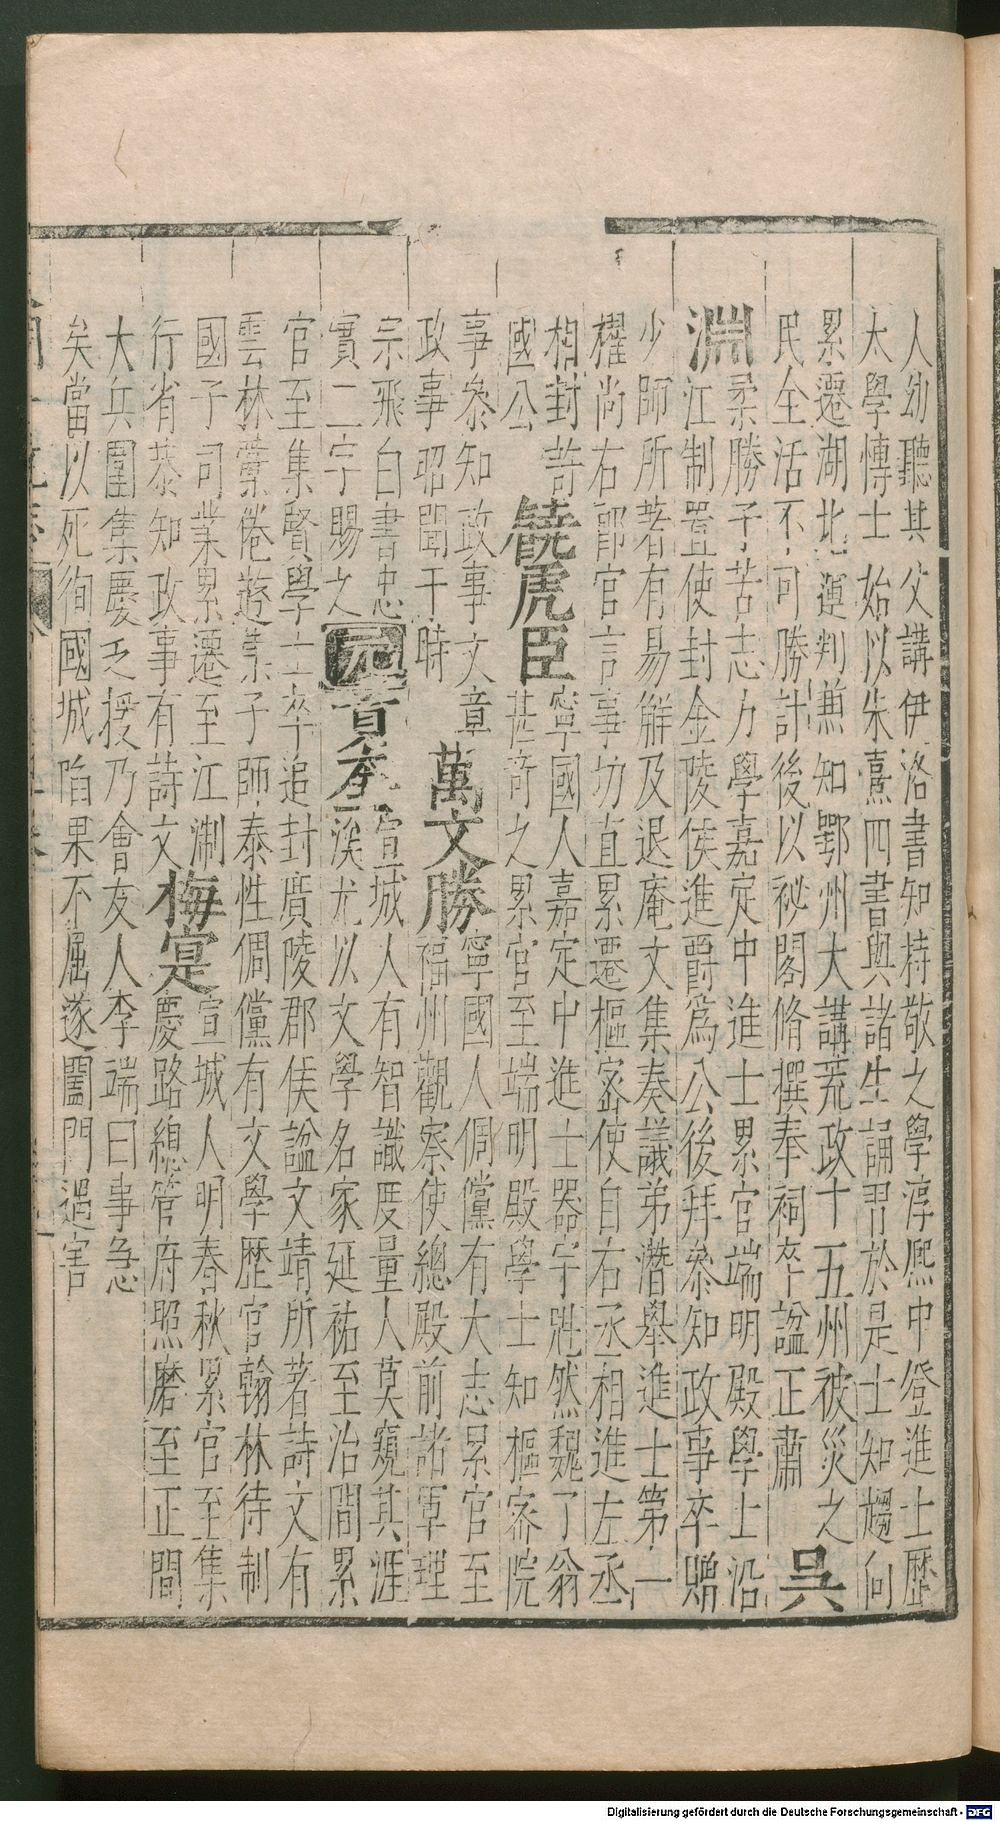 人幼聽其父講伊洛書知持敬之學淳熙中登進士歷
太學博士始以朱熹四書與諸生誦習於是士知趨向
累遷湖北運判兼知鄂州大講荒政十五州被災之
民全活不可勝計後以祕閣脩撰奉祠卒諡正肅 吳
淵
柔勝子苦志力學嘉定中進士累官端明殿學士沿
江制置使封金陵侯進爵爲公後拜參知政事卒贈
少師所著有易解及退庵文集奏議弟潛舉進士第一
櫂尚右郎官言事切直累遷樞密使自右丞相進左丞
相封許
國公
饒虎臣
寧國人嘉定中進士器宇灑然魏了翁
甚奇之累官至端明殿學士知樞密院
事參知政事文章
政事昭聞于時
萬文勝
寧國人倜儻有大志累官至
福州觀察使總殿前諸軍理
宗飛白書忠
實二字賜之
元
貢奎
宣城人有智識度量人莫窺其涯
涘尤以文學名家延祐至治間累
官至集賢學士卒追封廣陵郡侯諡文靖所著詩文有
雲林藁倦遊集子師泰性倜儻有文學歷官翰林待制
國子司業累遷至江淛
行省叅知政事有詩文
梅寔
宣城人明春秋累官至集
慶路總管府照磨至正間
大兵圍集慶乏援乃會友人李端曰事急
矣當以死徇國城陷果不屈遂闔門遇害
Digitalisierung gefördert durch die Deutsche Forschungsgemeinschaft - DFG